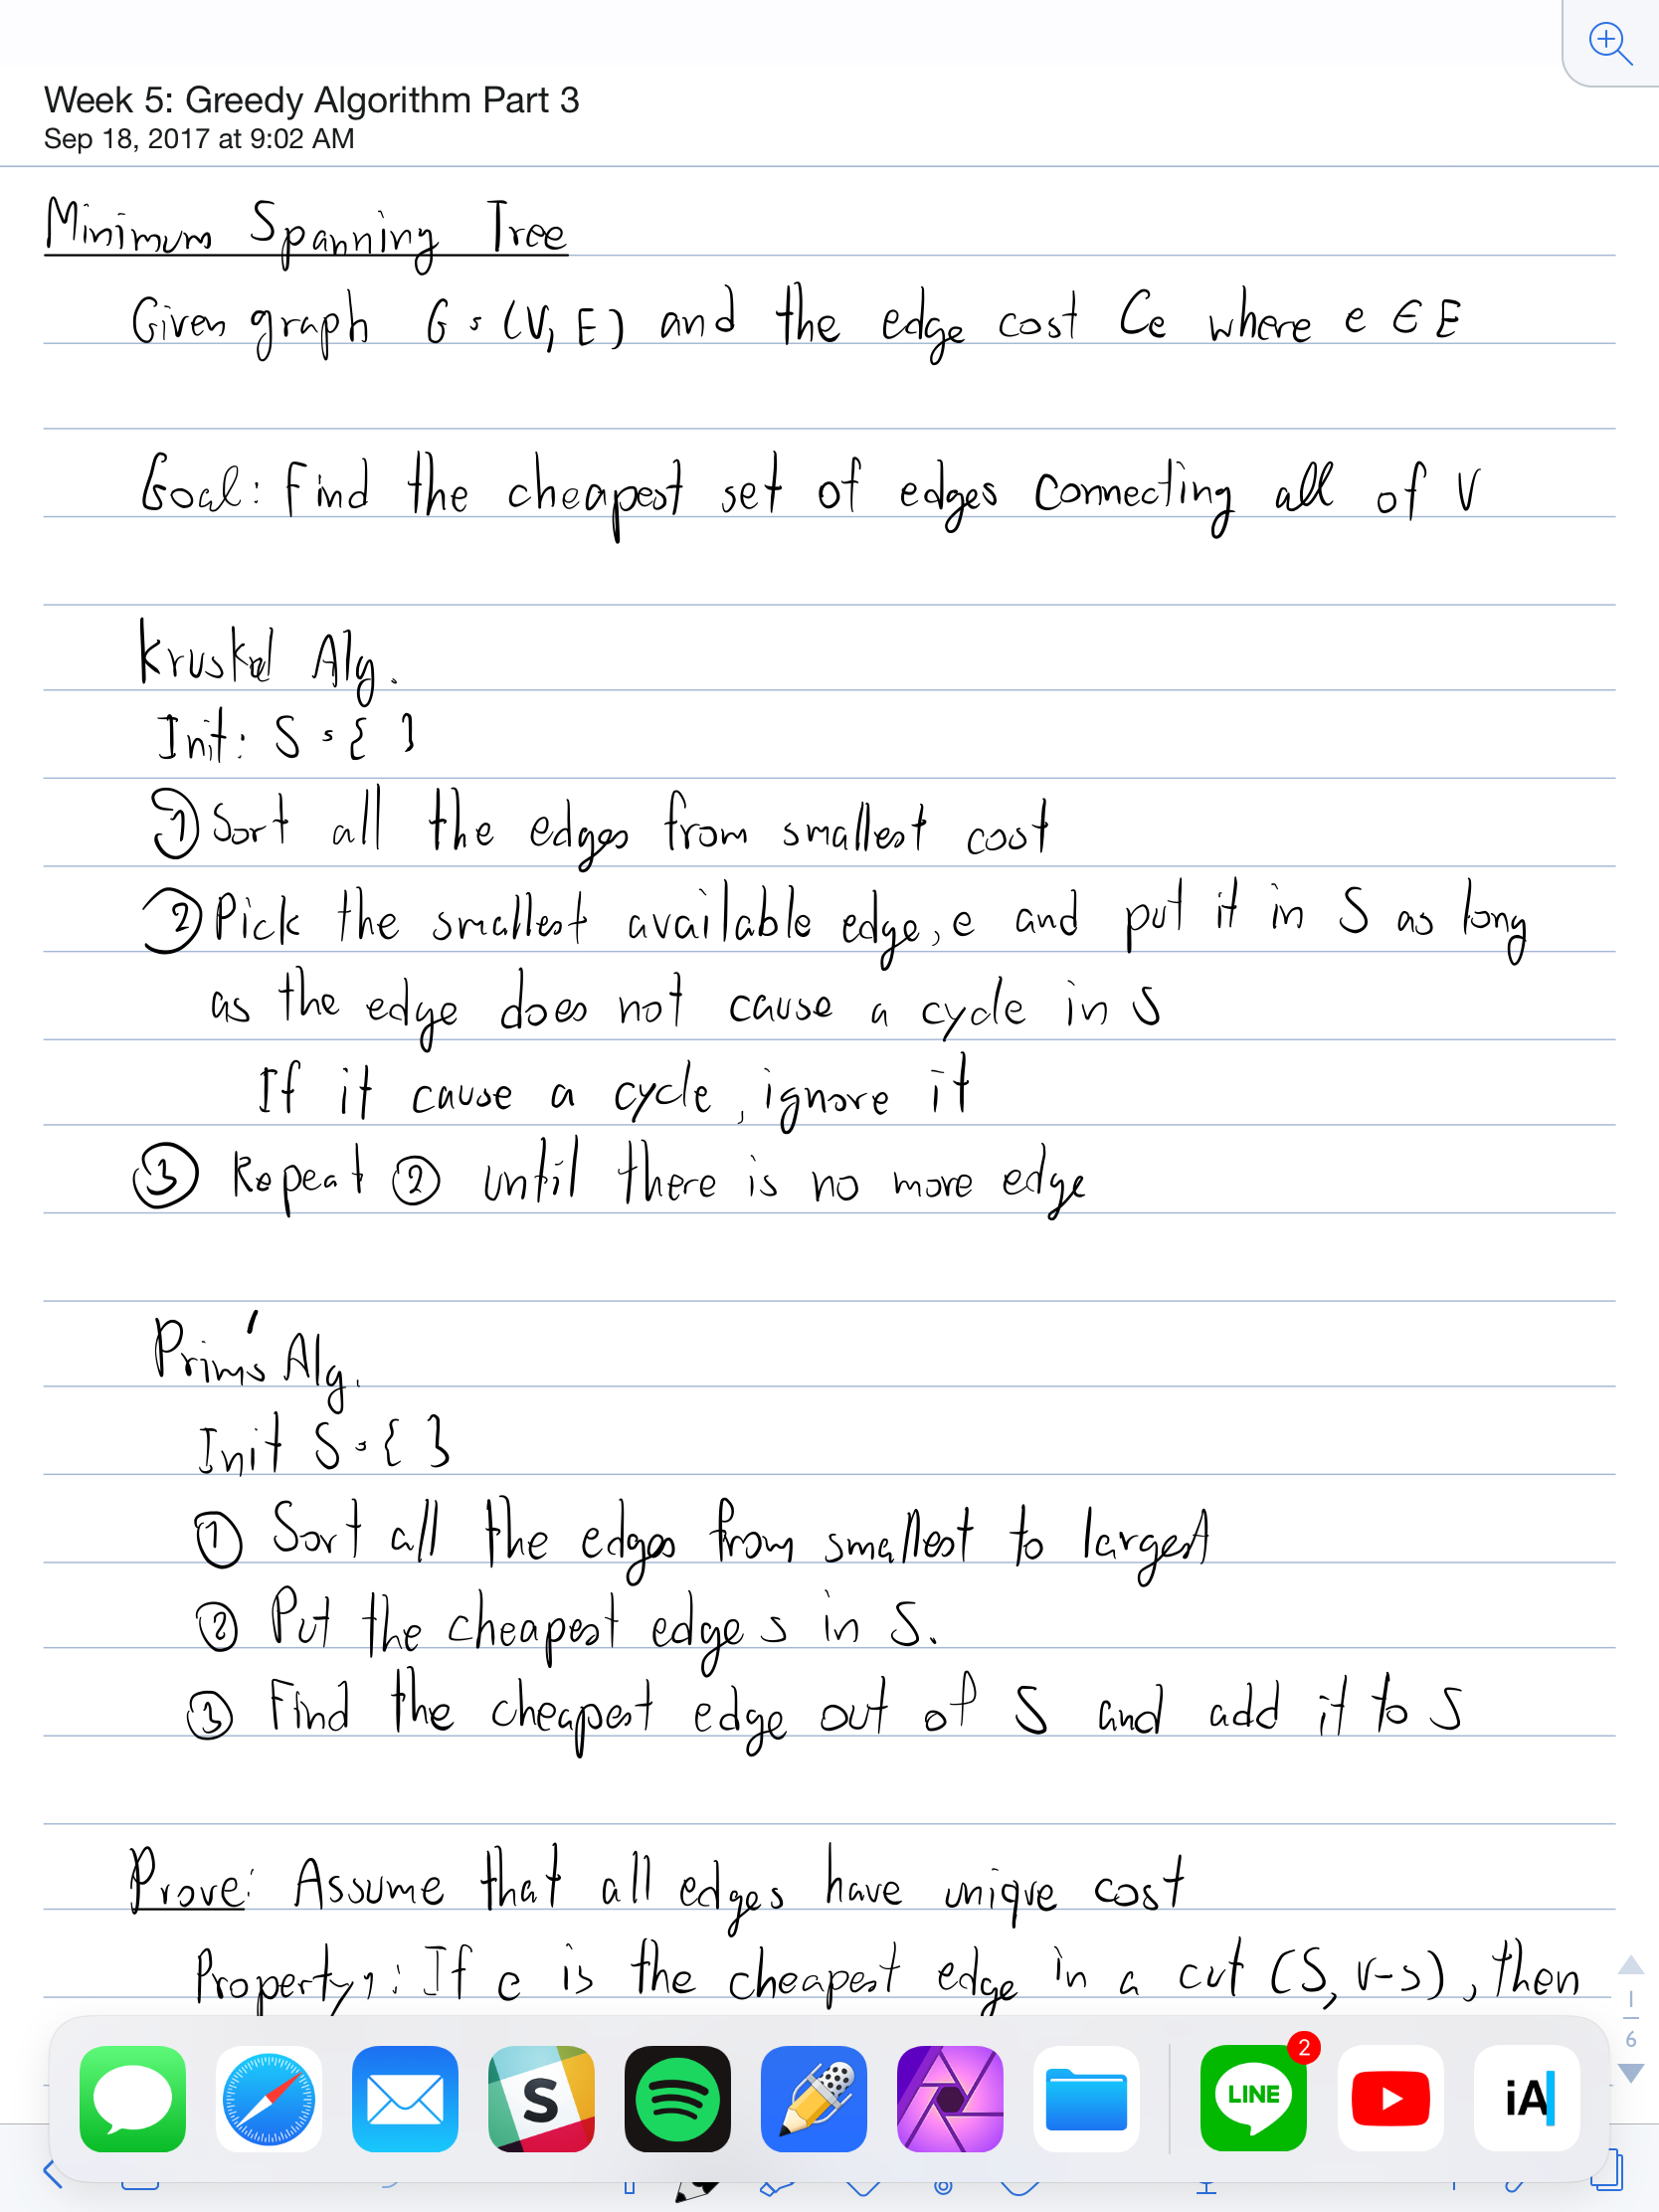 Week 5: Greedy Algorithm Part 3
Sep 18, 2017 at 9:02 AM
Minimum Spanning Tree
Given graph G = (V, E) and the edge cost Ce where e ∈ E
Goal: Find the cheapest set of edges connecting all of V
Kruskal Alg.
Init: S = { }
① Sort all the edges from smallest cost
② Pick the smallest available edge, e and put it in S as long
as the edge does not cause a cycle in S
If it cause a cycle, ignore it
③ Repeat ② until there is no more edge
Prim's Alg.
Init S = { }
① Sort all the edges from smallest to largest
② Put the cheapest edge s in S.
③ Find the cheapest edge out of S and add it to S
Prove: Assume that all edges have unique cost
Property 1: If e is the cheapest edge in a cut (S, V-S), then
1
6
2
S
LINE
iA